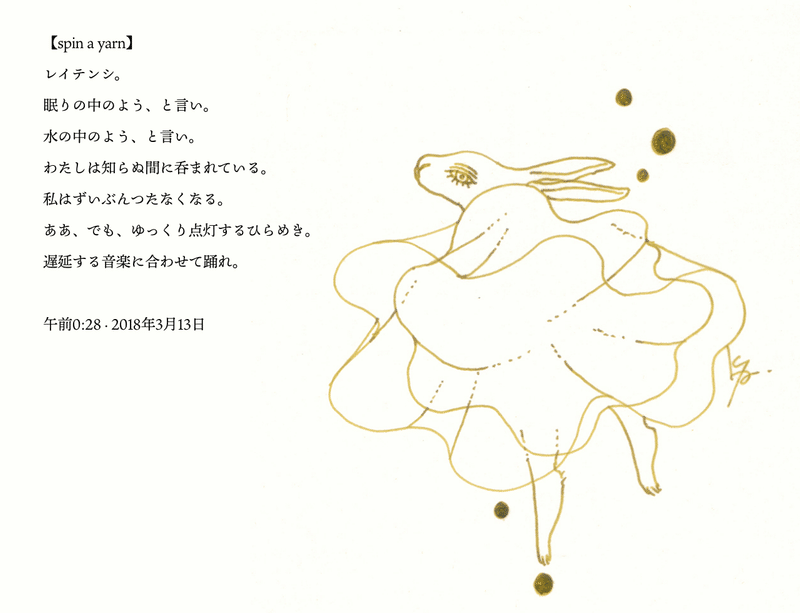 【spin a yarn】
レイテンシ。
眠りの中のよう、と言い。
水の中のよう、と言い。
わたしは知らぬ間に呑まれている。
私はずいぶんつたなくなる。
ああ、でも、ゆっくり点灯するひらめき。
遅延する音楽に合わせて踊れ。
午前0:28 · 2018年3月13日